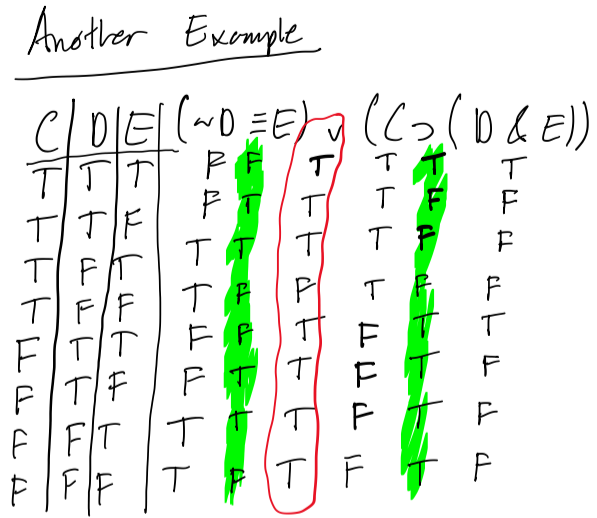 Another Example
C D E (~D ≡ E) ∨ (C ⊃ (D & E))
T T T F F T T T T
T T F F T T T F F
T F T T T T T F F
T F F T F F T F F
F T T F F T F T T
F T F F T T F T F
F F T T T T F T F
F F F T F T F T F